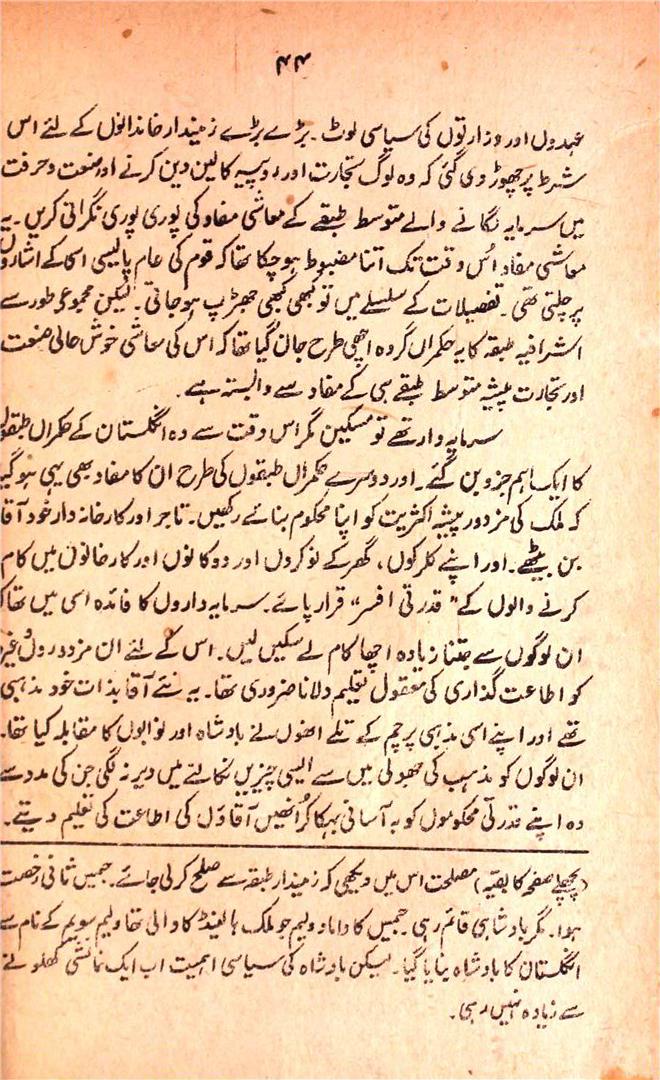 ۴۴
عہدوں اور وزارتوں کی سیاسی لوٹ۔ بڑے بڑے زمیندار خاندانوں کے لئے اس
شرط پر چھوڑ دی گئی کہ وہ لوگ تجارت اور روپیہ کا لین دین کرنے اور صنعت و حرفت
میں سرمایہ لگانے والے متوسط طبقے کے معاشی مفاد کی پوری پوری نگرانی کریں۔ یہ
معاشی مفاد اُس وقت تک اتنا مضبوط ہو چکا تھا کہ قوم کی عام پالیسی اسکے اشاروں
پر چلتی تھی۔ تفصیلات کے سلسلے میں تو کبھی کبھی جھڑپ ہو جاتی۔ لیکن مجموعی طور سے
اشرافیہ طبقہ کا یہ حکمراں گروہ اچھی طرح جان گیا تھا کہ اس کی معاشی خوش حالی صنعت
اور تجارت پیشہ متوسط طبقے ہی کے مفاد سے وابستہ ہے۔
سرمایہ دار تھے تو مسکین مگر اس وقت سے وہ انگلستان کے حکمراں طبقوں
کا ایک اہم جزو بن گئے۔ اور دوسرے حکمراں طبقوں کی طرح ان کا مفاد بھی یہی ہو گیا
کہ ملک کی مزدور پیشہ اکثریت کو اپنا محکوم بنائے رکھیں۔ تاجر اور کارخانہ دار خود آقا
بن بیٹھے۔ اور اپنے کلرکوں، گھر کے نوکروں اور دوکانوں اور کارخانوں میں کام
کرنے والوں کے "قدرتی افسر" قرار پائے۔ سرمایہ داروں کا فائدہ اسی میں تھا کہ
ان لوگوں سے جتنا زیادہ اچھا کام لے سکیں لیں۔ اس کے لئے ان مزدوروں وغیرہ
کو اطاعت گذاری کی معقول تعلیم دلانا ضروری تھا۔ یہ نئے آقا بذات خود مذہبی
تھے اور اپنے اسی مذہبی پرچم کے تلے انھوں نے بادشاہ اور نوابوں کا مقابلہ کیا تھا۔
ان لوگوں کو مذہب کی جھولی میں سے ایسی چیزیں نکالنے میں دیر نہ لگی جن کی مدد سے
وہ اپنے قدرتی محکوموں کو بہ آسانی بہکا کر انھیں آقاؤں کی اطاعت کی تعلیم دیتے۔
(پچھلے صفحہ کا بقیہ) مصلحت اس میں دیکھی کہ زمیندار طبقہ سے صلح کر لی جائے۔ جمیس ثانی رخصت
ہوا۔ مگر بادشاہی قائم رہی۔ جمیس کا داماد ولیم جو ملک ہالینڈ کا والی تھا ولیم سویم کے نام سے
انگلستان کا بادشاہ بنایا گیا۔ لیکن بادشاہ کی سیاسی اہمیت اب ایک نمائشی کھلونے
سے زیادہ نہیں رہی۔